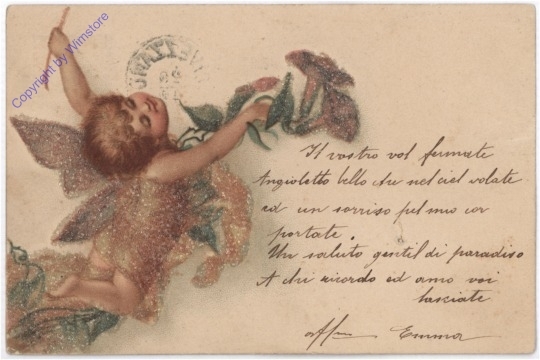 Copyright by Wimstore
Il vostro vol fermate
Angioletto bello che nel ciel volate
ed un sorriso pel mio cor
portate.
Un saluto gentil di paradiso
A chi ricordo ed amo voi
lasciate
aff/ma Emma